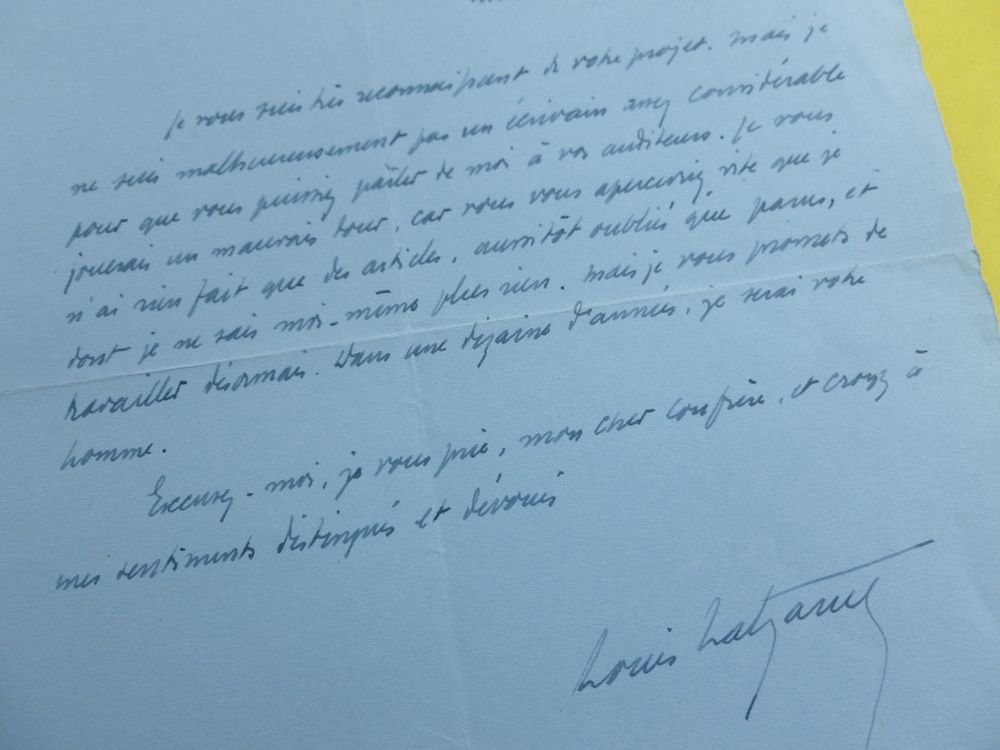 Je vous suis très reconnaissant de votre projet. Mais je
ne suis malheureusement pas un écrivain assez considérable
pour que vous puissiez parler de moi à vos auditeurs. Je vous
jouerais un mauvais tour, car vous vous apercevriez vite que je
n'ai rien fait que des articles, aussitôt oubliés que parus, et
dont je ne sais moi-même plus rien. Mais je vous promets de
travailler désormais. Dans une dizaine d'années, je serai votre
homme.
Excusez-moi, je vous prie, mon cher confrère, et croyez à
mes sentiments distingués et dévoués
Louis Latzarus